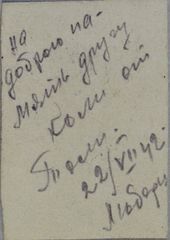 На
доброю па-
мять другу
Коли от
Толи.
22/VII 42.
Любар